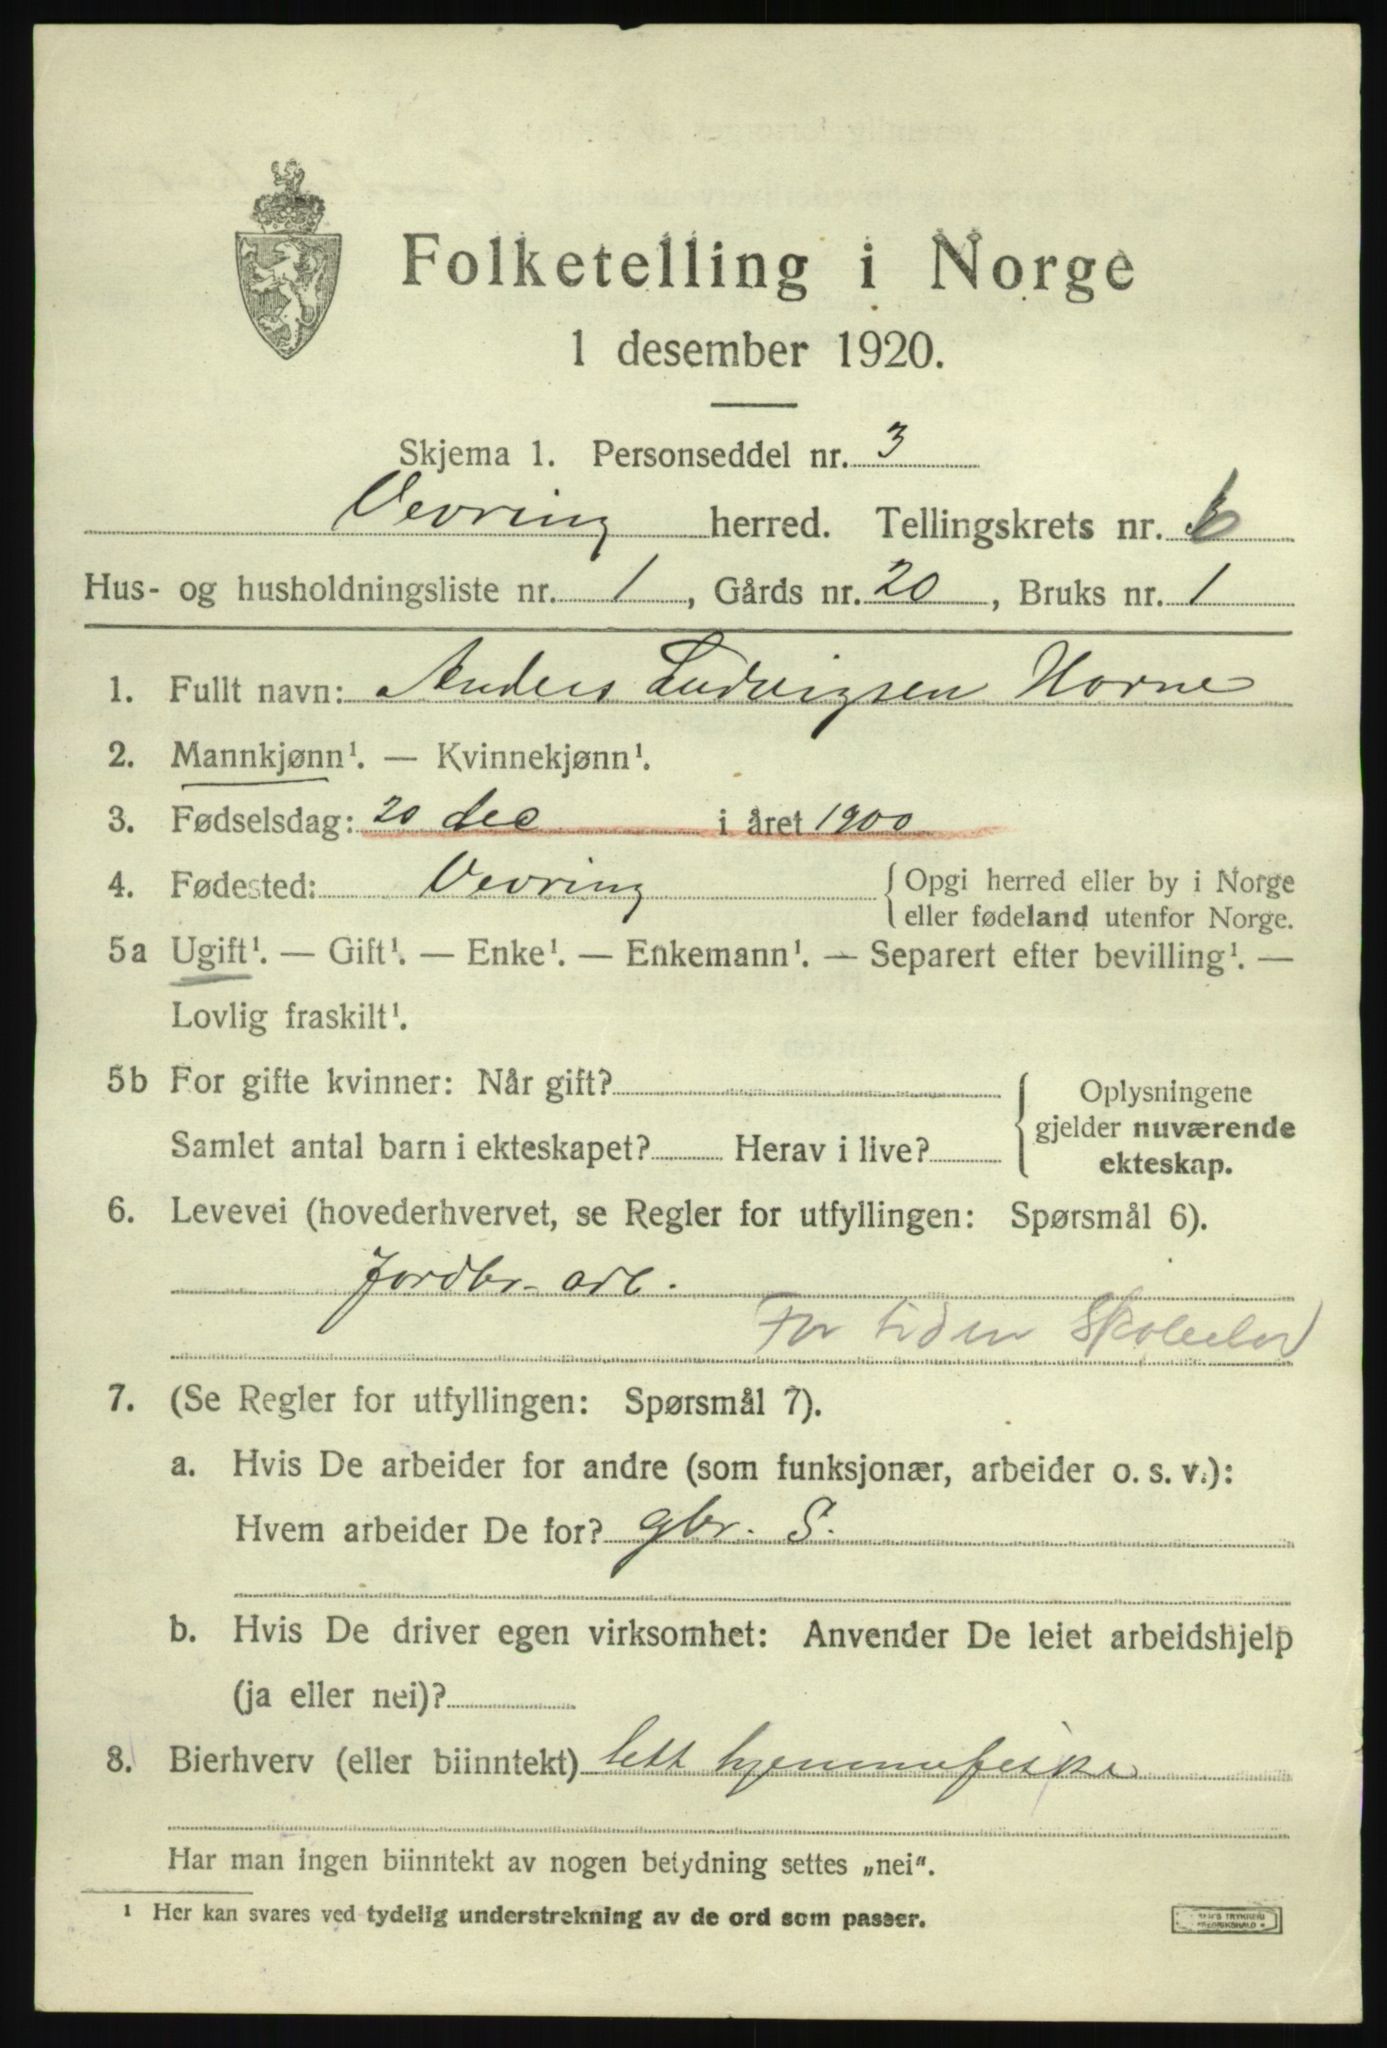 Folketelling i Norge
1 desember 1920.
Skjema 1. Personseddel nr. 3
Vevring herred. Tellingskrets nr. 6
Hus- og husholdningsliste nr. 1, Gårds nr. 20, Bruks nr. 1
1. Fullt navn: Anders Ludvigsen Horne
2. Mannkjønn¹. — Kvinnekjønn¹.
3. Fødselsdag: 20 dec i året 1900
4. Fødested: Vevring { Opgi herred eller by i Norge
eller fødeland utenfor Norge.
5a Ugift¹. — Gift¹. — Enke¹. — Enkemann¹. — Separert efter bevilling¹. —
Lovlig fraskilt¹.
5b For gifte kvinner: Når gift? { Oplysningene
gjelder nuværende
Samlet antal barn i ekteskapet? Herav i live?
ekteskap.
6. Levevei (hovederhvervet, se Regler for utfyllingen: Spørsmål 6).
Jordbr- arb.
For tiden Skoleelev
7. (Se Regler for utfyllingen: Spørsmål 7).
a. Hvis De arbeider for andre (som funksjonær, arbeider o. s. v.):
Hvem arbeider De for? gbr. S.
b. Hvis De driver egen virksomhet: Anvender De leiet arbeidshjelp
(ja eller nei)?
8. Bierhverv (eller biinntekt) lett hjemmefiske
Har man ingen biinntekt av nogen betydning settes „nei“.
¹ Her kan svares ved tydelig understrekning av de ord som passer.